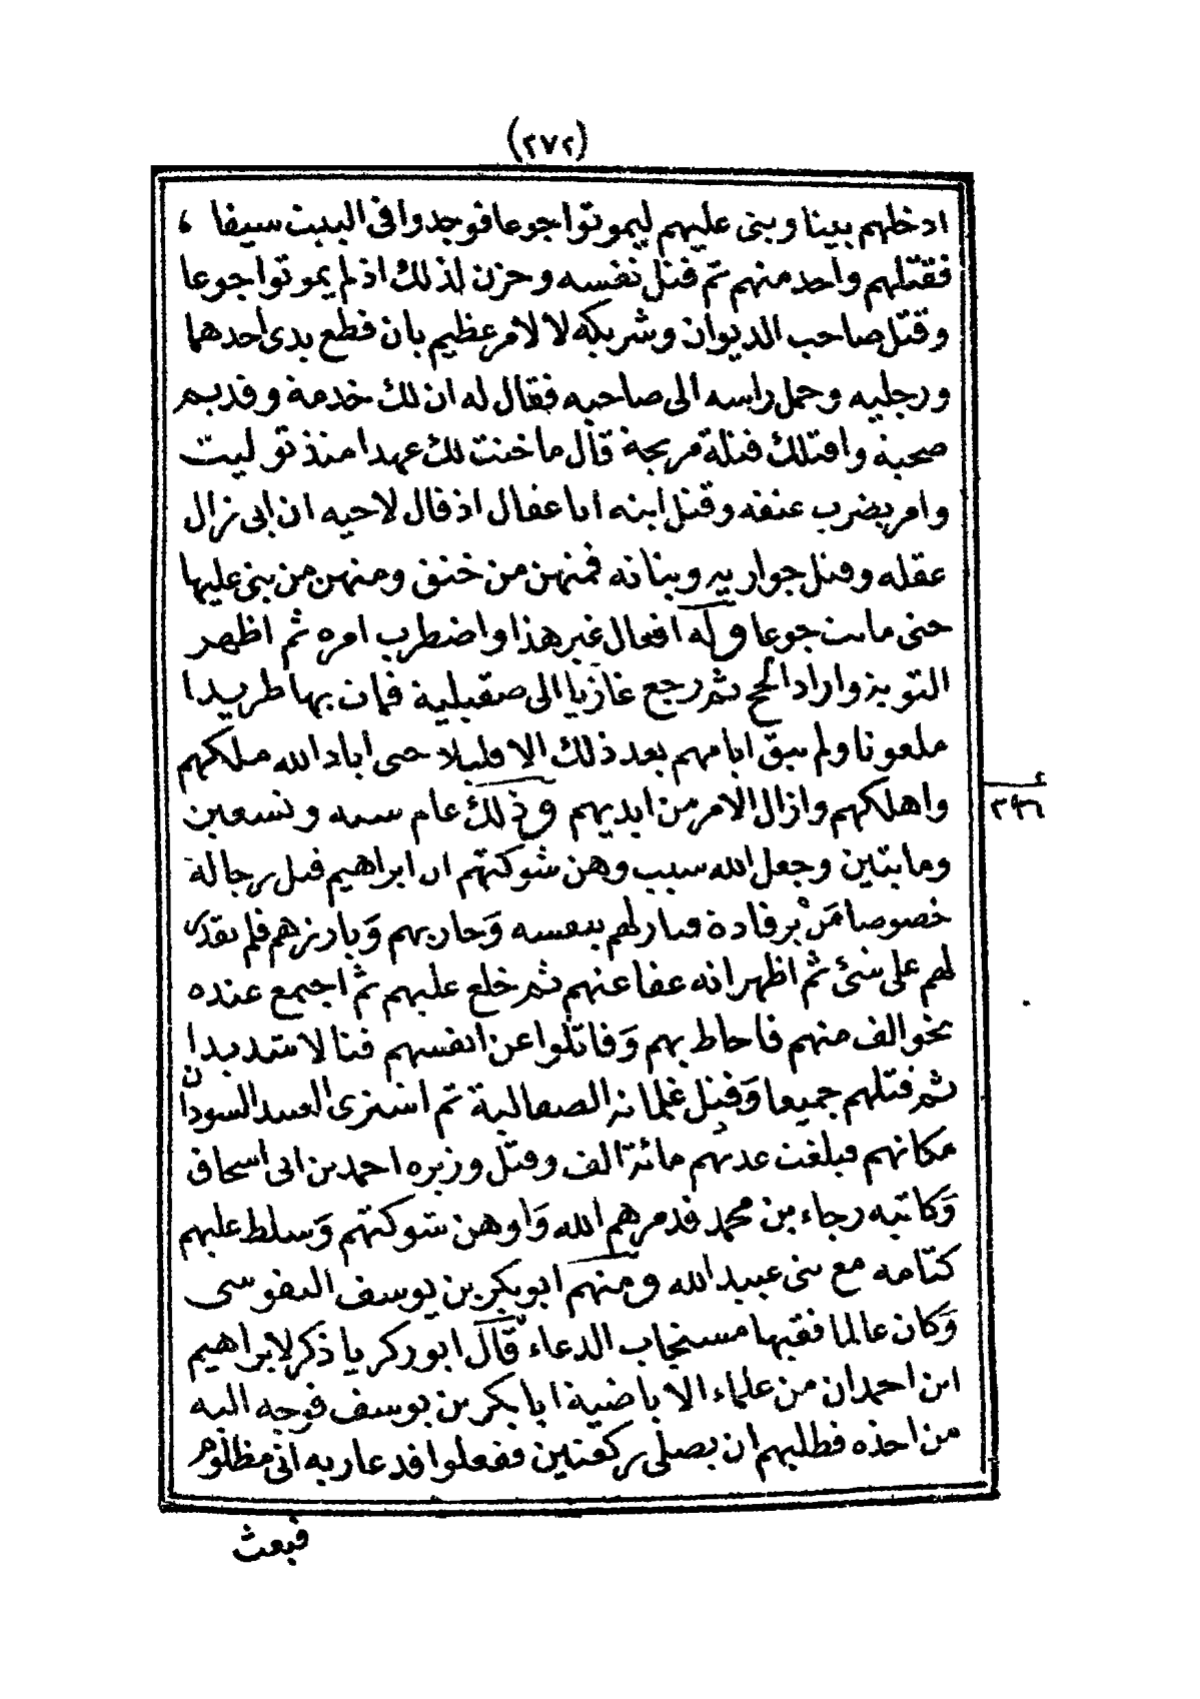 (٢٧٢)
ادخلهم بيتا وبنى عليهم ليموتوا جوعا فوجدوا فى البيت سيفا ،
فقتلهم واحد منهم ثم قتل نفسه وحزن لذلك اذ لم يموتوا جوعا
وقتل صاحب الديوان وشريكه لا لامر عظيم بان قطع يدى احدهما
ورجليه وحمل راسه الى صاحبه فقال له ان لك خدمة وقديم
صحبة واقتلك قتلة مريحة قال ما خنت لك عهدا منذ توليت
وامر بضرب عنقه وقتل ابنه ابا عفال اذ قال لاخيه ان ابى زال
عقله وقتل جواريه وبناته فمنهن من خنق ومنهن من بنى عليها
حتى ماتت جوعا وله افعال غير هذا واضطرب امره ثم اظهر
التوبة واراد الحج ثم رجع غازيا الى صقيلية فمات بها طريدا
ملعونا ولم تبق ايامهم بعد ذلك الا قليلا حتى اباد الله ملكهم
واهلكهم وازال الامر من ايديهم وذلك عام ستة وتسعين
ع
٢٩٦
ومايتين وجعل الله سبب وهن شوكتهم ان ابراهيم قتل رجاله
خصوصا من برقادة فبارلهم بنفسه وحاربهم وبارزهم فلم يقدر
لهم على شئ ثم اظهر انه عفا عنهم ثم خلع عليهم ثم اجتمع عنده
نحو الف منهم فاحاط بهم وقاتلوا عن انفسهم قتالا شديدا
ثم قتلهم جميعا وقتل غلمانه الصقالبة ثم اشترى العبيد السودان
مكانهم فبلغت عدتهم مائة الف وقتل وزيره احمد بن ابى اسحاق
وكاتبه رجاء بن محمد فدمرهم الله واوهن شوكتهم وسلط عليهم
كتامه مع بنى عبيد الله ومنهم ابو بكر بن يوسف النفوسى
وكان عالما فقيها مستجاب الدعاء قال ابو زكريا ذكر لابراهيم
ابن احمد ان من علماء الاباضية ابا بكر بن يوسف فوجه اليه
من اخذه فطلبهم ان يصلى ركعتين ففعلوا فدعا ربه انى مظلوم
فبعث